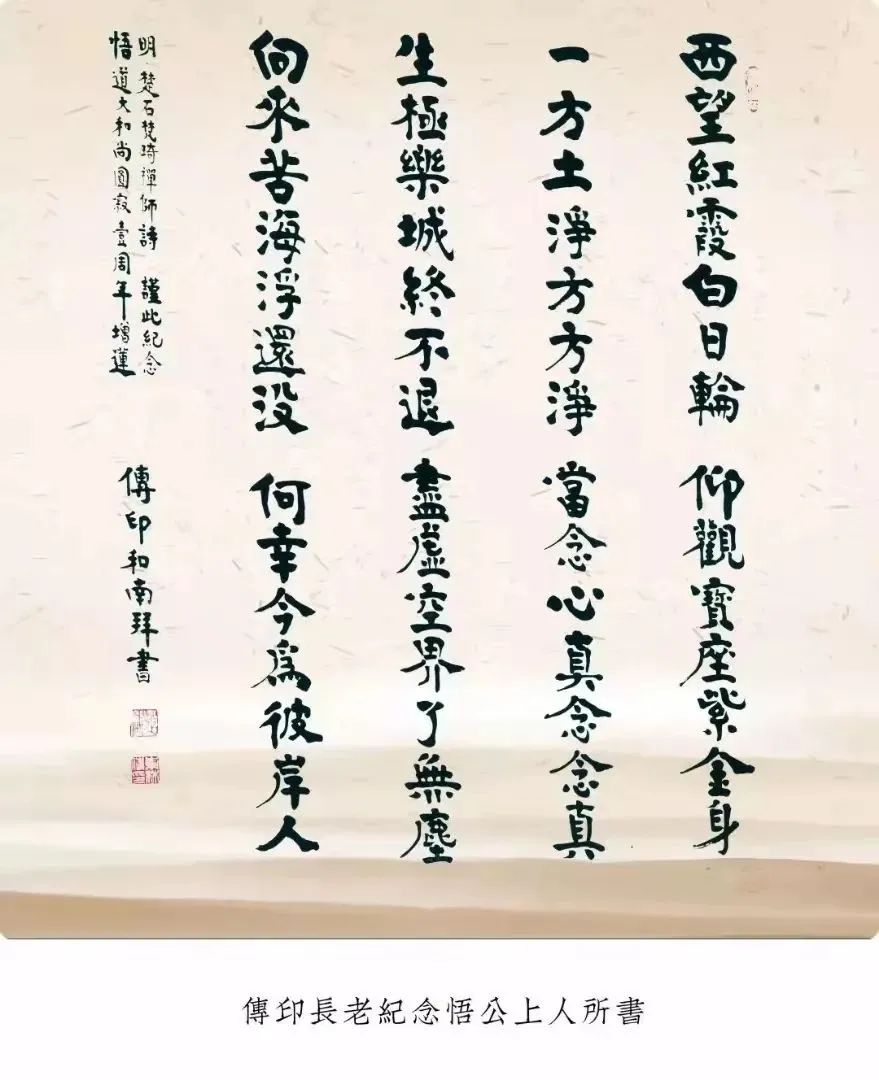 西望紅霞白日輪 仰觀寶座紫金身
一方土淨方方淨 當念心真念念真
生極樂城終不退 盡虛空界了無塵
向來苦海浮還没 何幸今爲彼岸人
明 楚石梵琦禪師詩 謹此紀念
悟道大和尚圓寂壹周年增蓮
傳印和南拜書
傳印長老紀念悟公上人所書